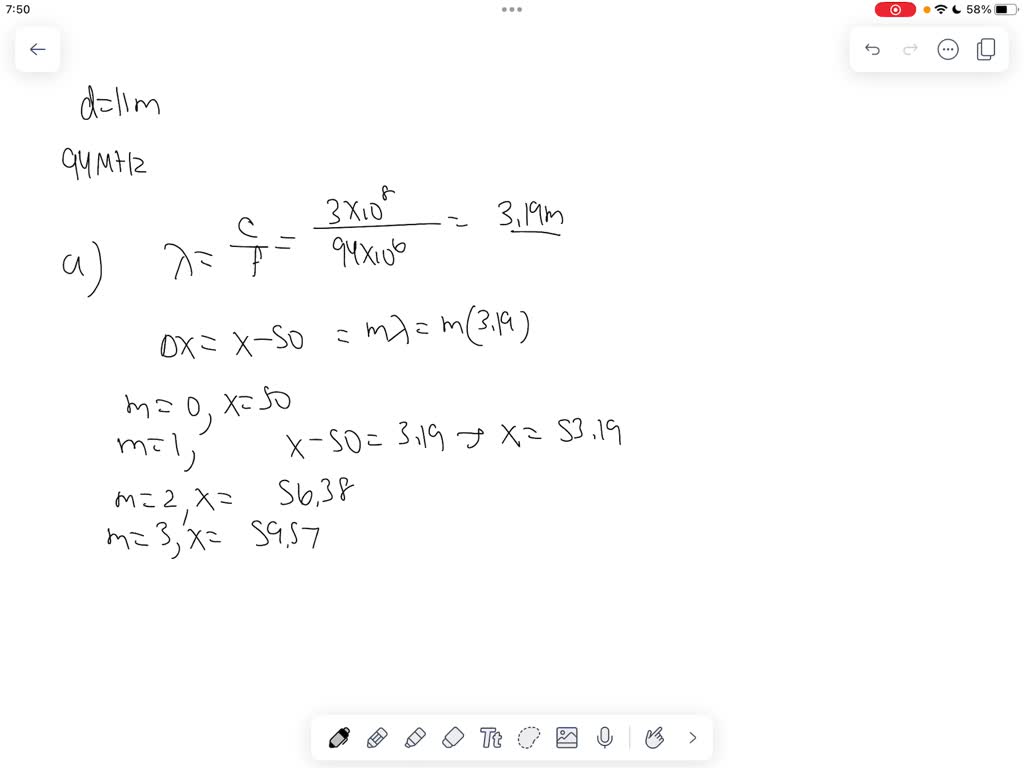 7:50
58%
d=11m
94MHz
a) λ= c/f = 3x10⁸/94x10⁶ = 3.19m
Δx= x-50 = mλ= m(3.19)
m=0, x=50
m=1, x-50=3.19 → x= 53.19
m=2, x= 56.38
m=3, x= 59.57
Tt